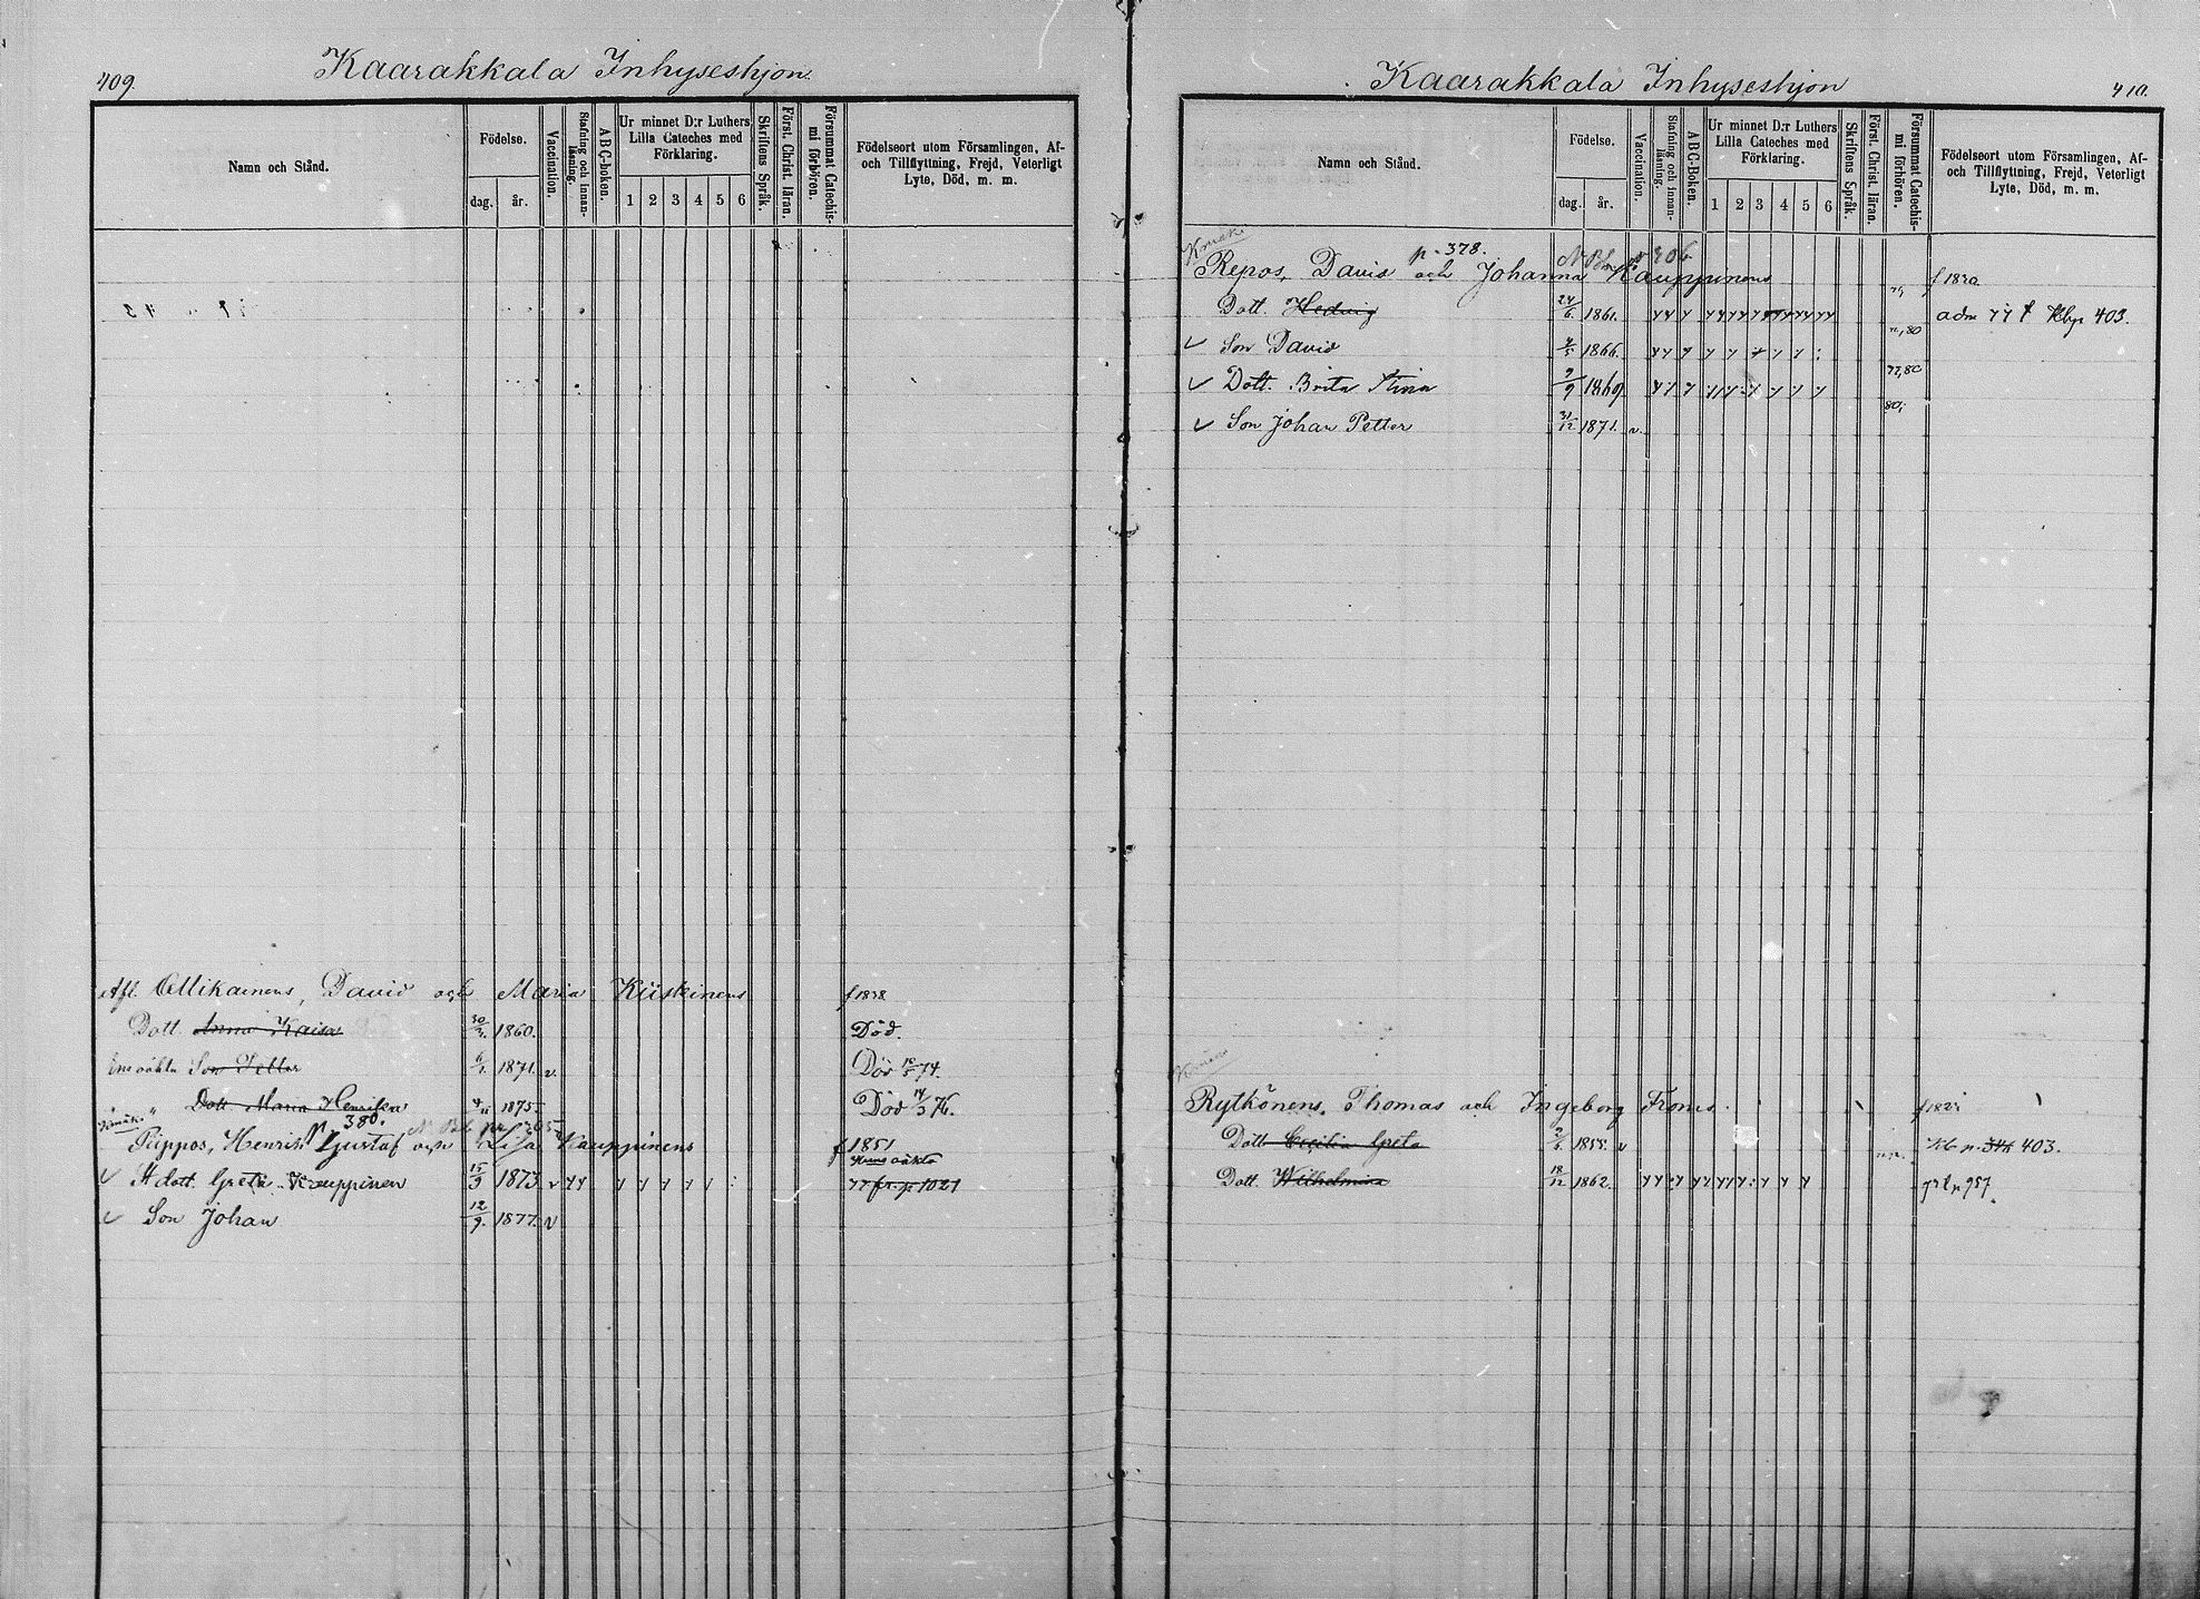 409.
Kaarakkala Inhyseshjon.
Namn och Stånd.
Födelse.
dag.
år.
Vaccination.
Stafning och innan-läsning.
ABC-boken.
Ur minnet D:r Luthers
Lilla Cateches med
Förklaring.
1 2 3 4 5 6
Skriftens Språk.
Först. Christ. läran.
Försummat Catechis-mi förhören.
Födelseort utom Församlingen, Af-
och Tillflyttning, Frejd, Veterligt
Lyte, Död, m. m.
Afl. Ollikainens, David och Maria Kiiskinens f 1838
Dott. Anna Kaisa 30/3. 1860. Död.
Ens oäkta Son Petter 6/1. 1871. v. Död 10/5 74.
" Dott Maria Henrika 4/11 1875. Död 14/3 76.
p. 380.
Piippos, Henrik Gustaf och Lisa Kauppinens f 1851
Hans oäkta
H dott. Greta Kauppinen 15/9 1873 v 77 fr. p 1021
Son Johan 12/9. 1877. v
Kaarakkala Inhyseshjon
410.
Namn och Stånd.
Födelse.
dag.
år.
Vaccination.
Stafning och innan-läsning.
ABC-Boken.
Ur minnet D:r Luthers
Lilla Cateches med
Förklaring.
1 2 3 4 5 6
Skriftens Språk.
Först. Christ. läran.
Försummat Catechis-mi förhören.
Födelseort utom Församlingen, Af-
och Tillflyttning, Frejd, Veterligt
Lyte, Död, m. m.
p. 378.
Repos, David och Johanna Kauppinens
Dott. Hedvig 24/6. 1861. adm 77 Kbp 403.
Son David 4/5 1866.
Dott. Brita Stina 9/9 1869 77,80
Son Johan Petter 31/12 1871. v. 80;
Rytkönens, Thomas och Ingeborg
Dott Cecilia Greta 1855. v 403.
Dott. Wilhelmina 18/12 1862. 957.